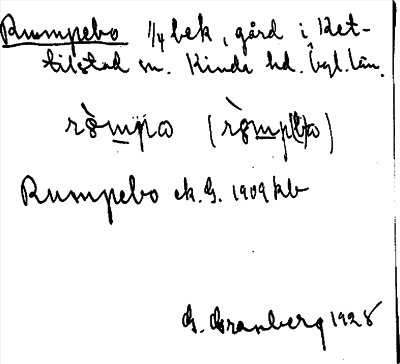 Rumpebo 1/4 bek, gård i Ket-
tilstad sn. Kinda hd. Ögl. län.
ròmpa (ròmpba)
Rumpebo ek. G. 1909 kb
G. Granberg 1928